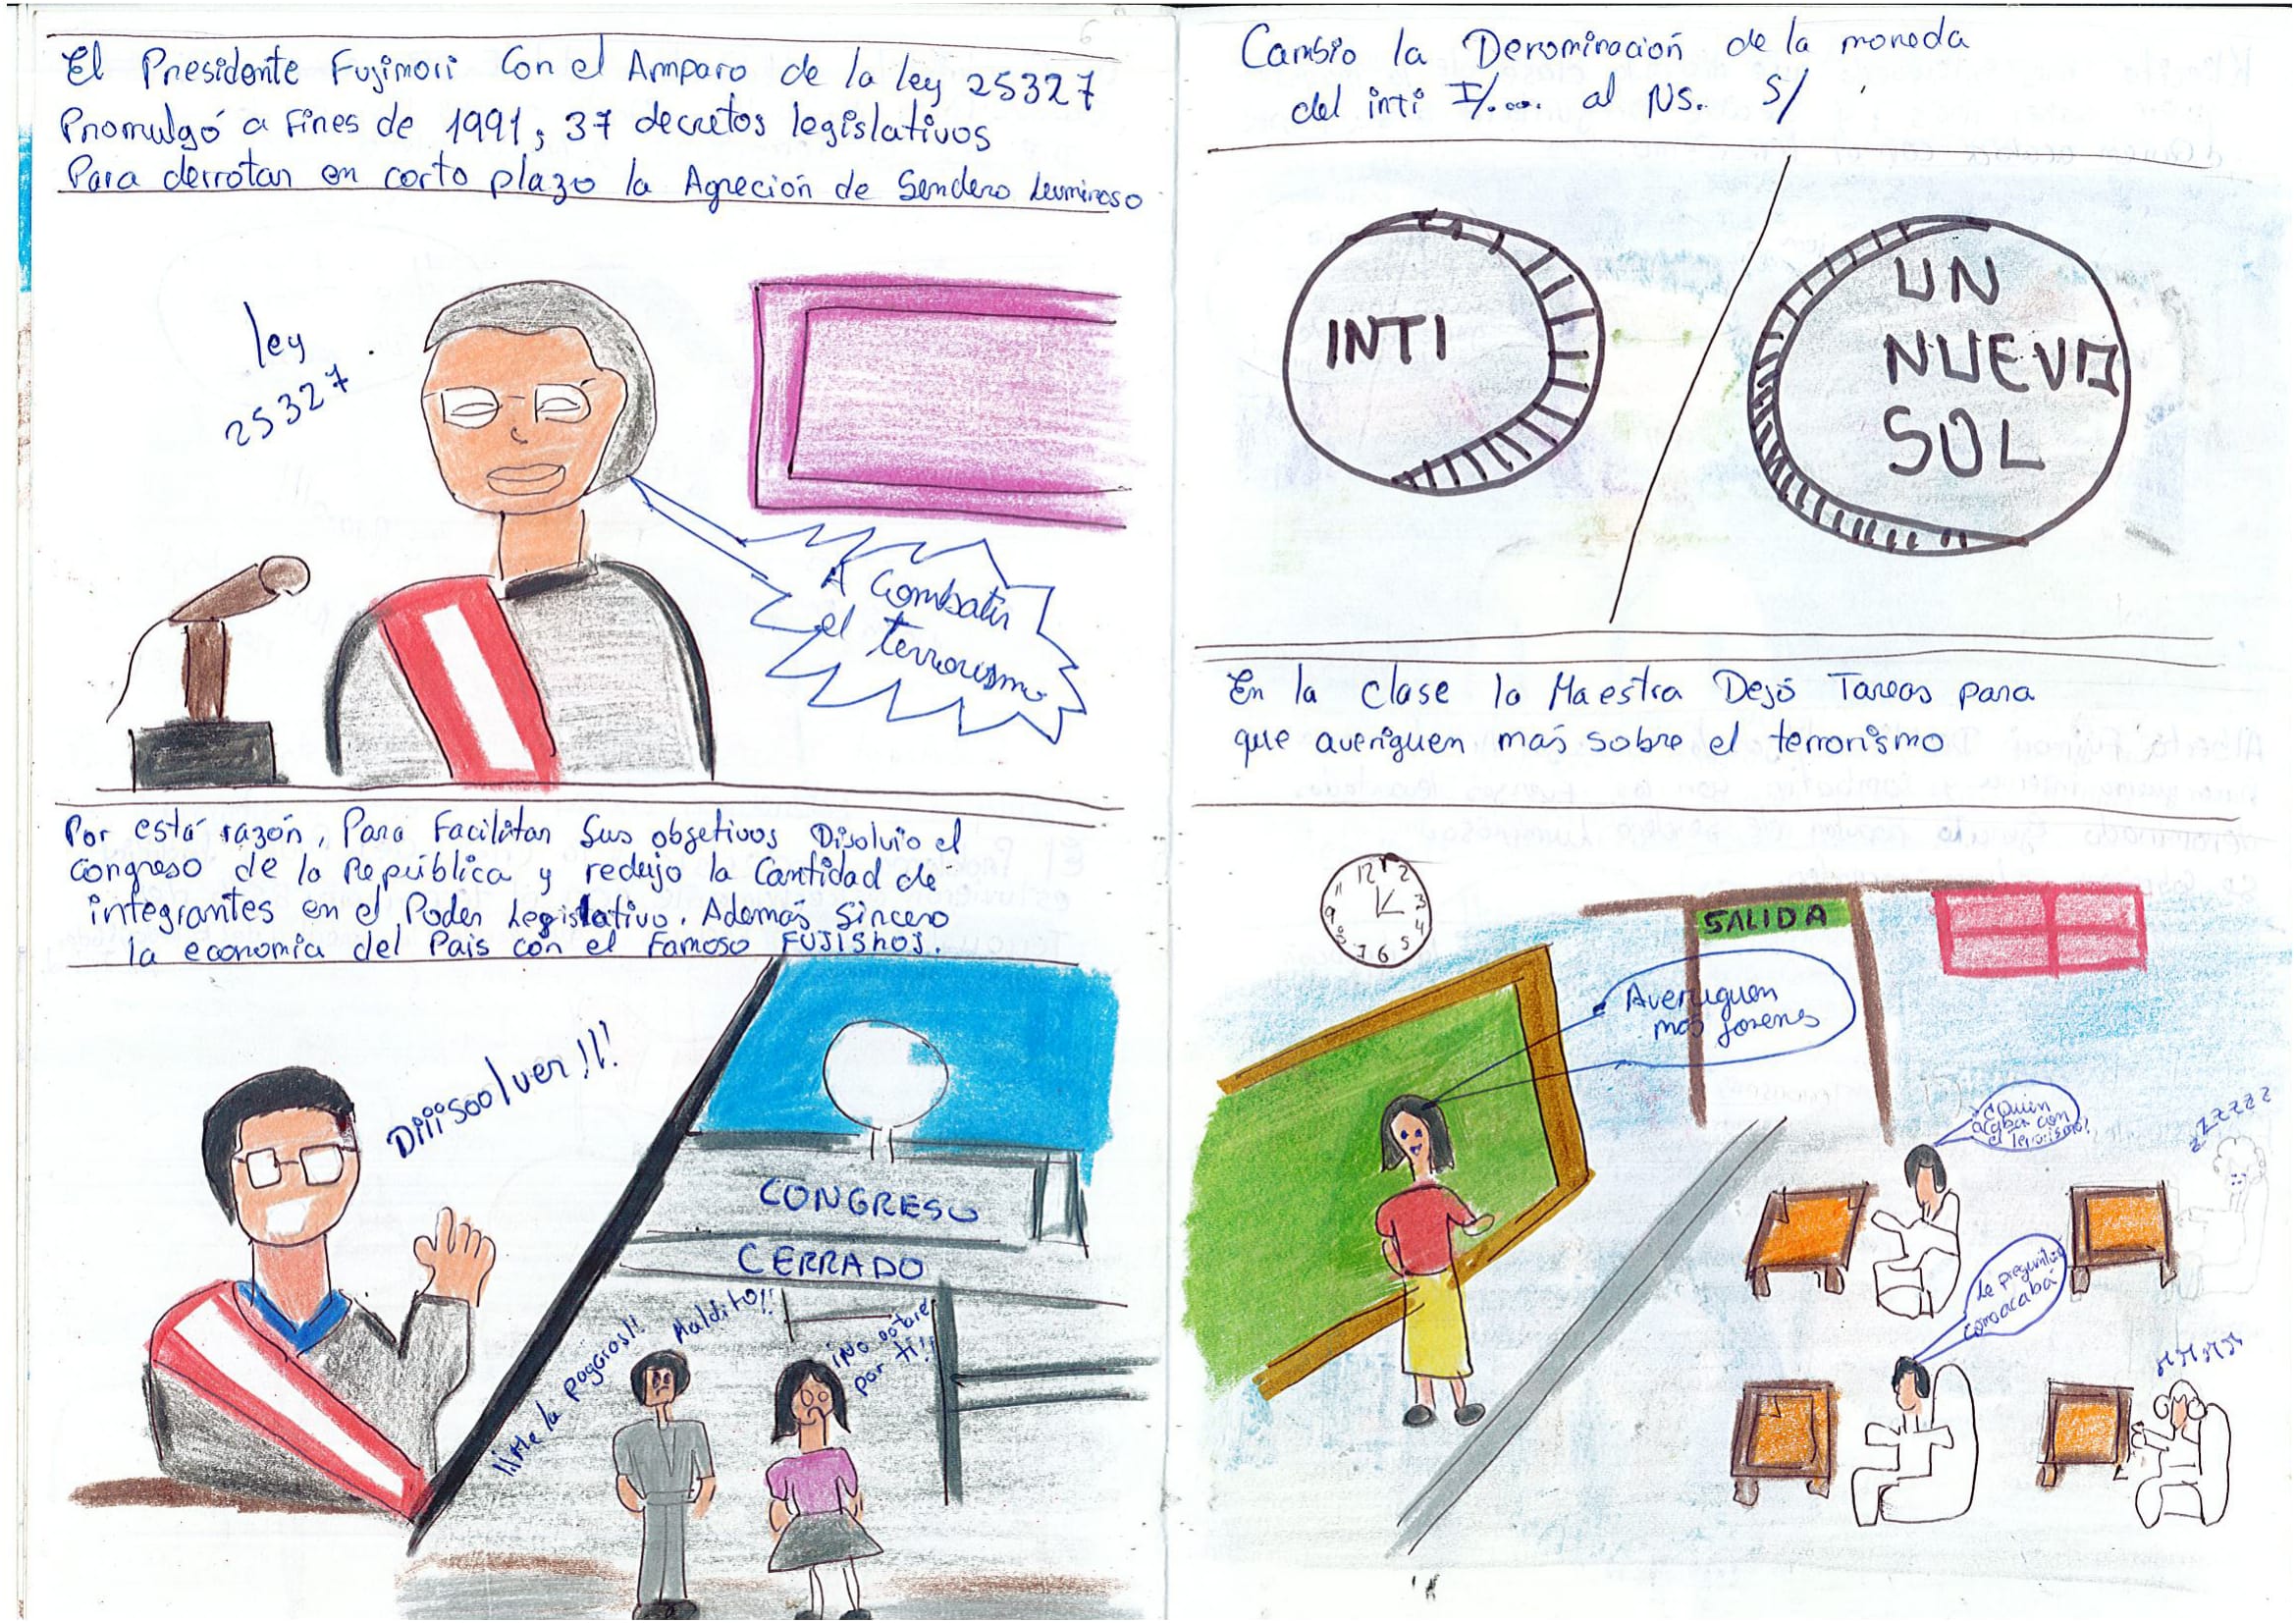 El Presidente Fujimori Con el Amparo de la ley 25327
Promulgó a Fines de 1991, 37 decretos legislativos
Para derrotar en corto plazo la Agreción de Sendero Luminoso
ley
25327
A Combatir
el terrorismo
Por está razón, Para Facilitar Sus objetivos Disolvio el
congreso de la República y redujo la Cantidad de
integrantes en el Poder Legislativo. Además Sincero
la economia del Pais con el Famoso FUJISHOJ.
Diiisoolver!!!
CONGRESO
CERRADO
¡¡Me la pagaras!!
Maldito!!
¡No votare
por ti!!
Cambio la Denominación de la moneda
del inti I/... al NS. S/
INTI
UN
NUEVO
SOL
En la clase la Maestra Dejó Tareas para
que averiguen más sobre el terrorismo
12
2
3
4
5
6
7
8
9
11
SALIDA
Averiguen
mas jovenes
¿Quien
acaba con
el terrorismo?
zzzzzz
La pregunta
como acaba